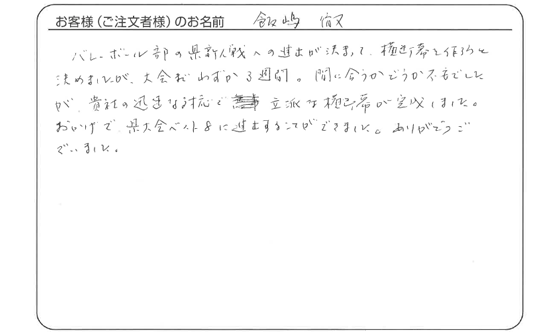 お客様（ご注文者様）のお名前 飯嶋
バレーボール部の県新人戦への進出が決まって、横断幕を作ろうと
決めましたが、大会までわずか3週間。間に合うかどうか不安でした
が、貴社の迅速な対応で 立派な横断幕が完成しました。
おかげで、県大会ベスト8に進出することができました。ありがとうご
ざいました。